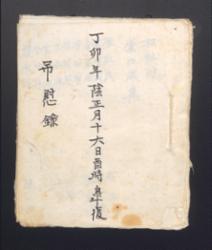 丁卯年陰正月十六日酉時皐復
弔慰錄